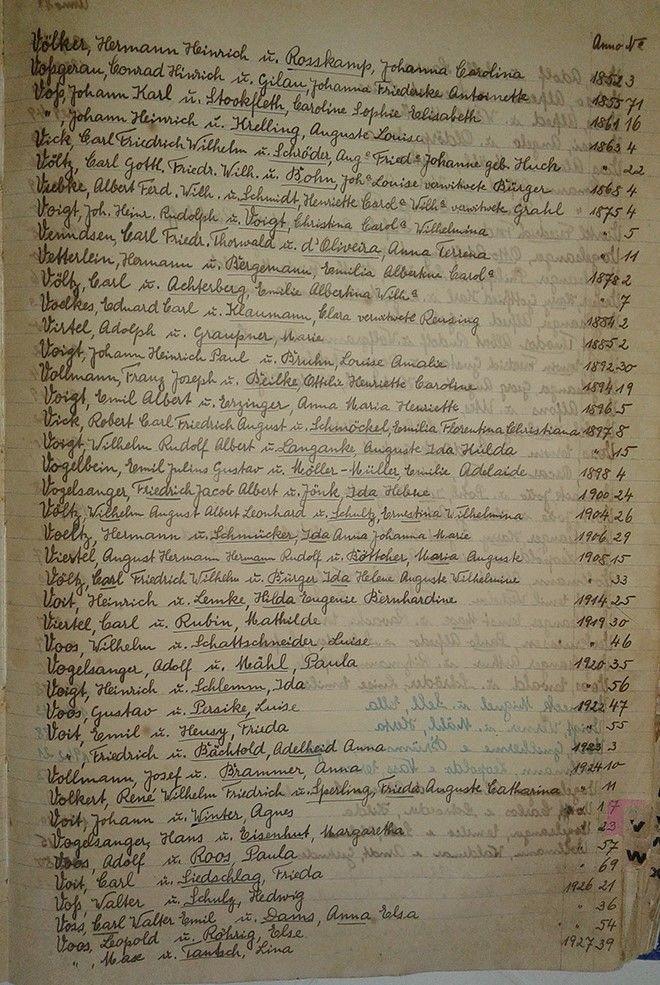 Anno Nº
Völker, Hermann Heinrich u. Rosskamp, Johanna Carolina 1852 3
Voßgerau, Conrad Hinrich u. Gilau Johanna Friederike Antoinette 1855 71
Voß, Johann Karl u. Stookfleth, Caroline Sophie Elisabeth 1861 16
" , Johann Heinrich u. Krelling, Auguste Louisa 1863 4
Vick, Carl Friedrich Wilhelm u. Schröder, Augᵃ Friedᵃ Johanne geb. Huck " 22
Völtz, Carl Gottl. Friedr. Wilh. u. Bohn, Johᵃ Louise verwitwete Bürger 1865 4
Viebke, Albert Ferd. Wilh. u. Schmidt, Henriette Carolᵃ Wilhᵃ verwitwete Grahl 1875 4
Voigt, Joh. Heinr. Rudolph u. Voigt, Christina Carolᵃ Wilhelmina " 5
Vermdsen, Carl Friedr. Thorwald u. d'Oliveira, Anna Terrena " 11
Vetterlein, Hermann u. Bergemann, Emilia Albertine Carolᵃ 1878 2
Völtz, Carl u. Achterberg, Emilie Albertina Wilhᵃ " 7
Voelkes, Eduard Carl u. Klaumann, Clara verwitwete Rensing 1884 2
Virtel, Adolph u. Graupner, Marie 1885 2
Voigt, Johann Heinrich Paul u. Bruhn, Louise Amalie 1892 30
Vollmann, Franz Joseph u. Beilke, Ottilie Henriette Caroline 1894 19
Voigt, Emil Albert u. Erzinger, Anna Maria Henriette 1896 5
Vick, Robert Carl Friedrich August u. Schmöckel, Emilia Florentina Christiana 1897 8
Voigt, Wilhelm Rudolf Albert u. Langanke, Auguste Ida Hulda " 15
Vogelbein, Emil Julius Gustav u. Möller-Müller, Emilie Adelaide 1898 4
Vogelsanger, Friedrich Jacob Albert u. Jönk, Ida Helene 1900 24
Völtz, Wilhelm August Albert Leonhard u. Schultz, Ernestina Wilhelmina 1904 26
Voeltz, Hermann u. Schmücker, Ida Anna Johanna Marie 1906 29
Viertel, August Hermann Hermann Rudolf u. Böttcher, Maria Auguste 1908 15
Völtz, Carl Friedrich Wilhelm u. Bürger Ida Helene Auguste Wilhelmine " 33
Voit, Heinrich u. Lemke, Hilda Eugenie Bernhardine 1914 25
Viertel, Carl u. Rubin, Mathilde 1919 30
Voos, Wilhelm u. Schattschneider, Luise " 46
Vogelsanger, Adolf u. Mähl, Paula 1920 35
Voigt, Heinrich u. Schlemm, Ida " 56
Voos, Gustav u. Persike, Luise 1922 47
Voit, Emil u. Heusy, Frieda " 55
" , Friedrich u. Bächtold, Adelheid Anna 1923 3
Vollmann, Josef u. Brammer, Anna 1924 10
Volkert, René Wilhelm Friedrich u. Sperling, Frieda Auguste Catharina " 11
Voit, Johann u. Winter, Agnes " 17
Vogelsanger, Hans u. Eisenhut, Margaretha " 23
Voos, Adolf u. Roos, Paula " 57
Voit, Carl u. Siedschlag, Frieda " 69
Voß, Walter u. Schulz, Hedwig 1926 21
Voss, Carl Walter Emil u. Dams, Anna Elsa " 36
Voos, Leopold u. Röhrig, Else " 54
" , Max u. Tantsch, Lina 1927 39